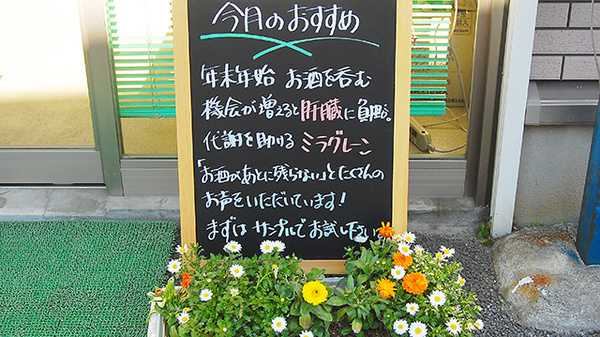 今月のおすすめ
年末年始 お酒を呑む
機会が増えると肝臓に負担が。
代謝を助ける ミラグレーン
「お酒があとに残らない」とたくさんの
お声をいただいています!
まずは サンプルでお試し下さい。